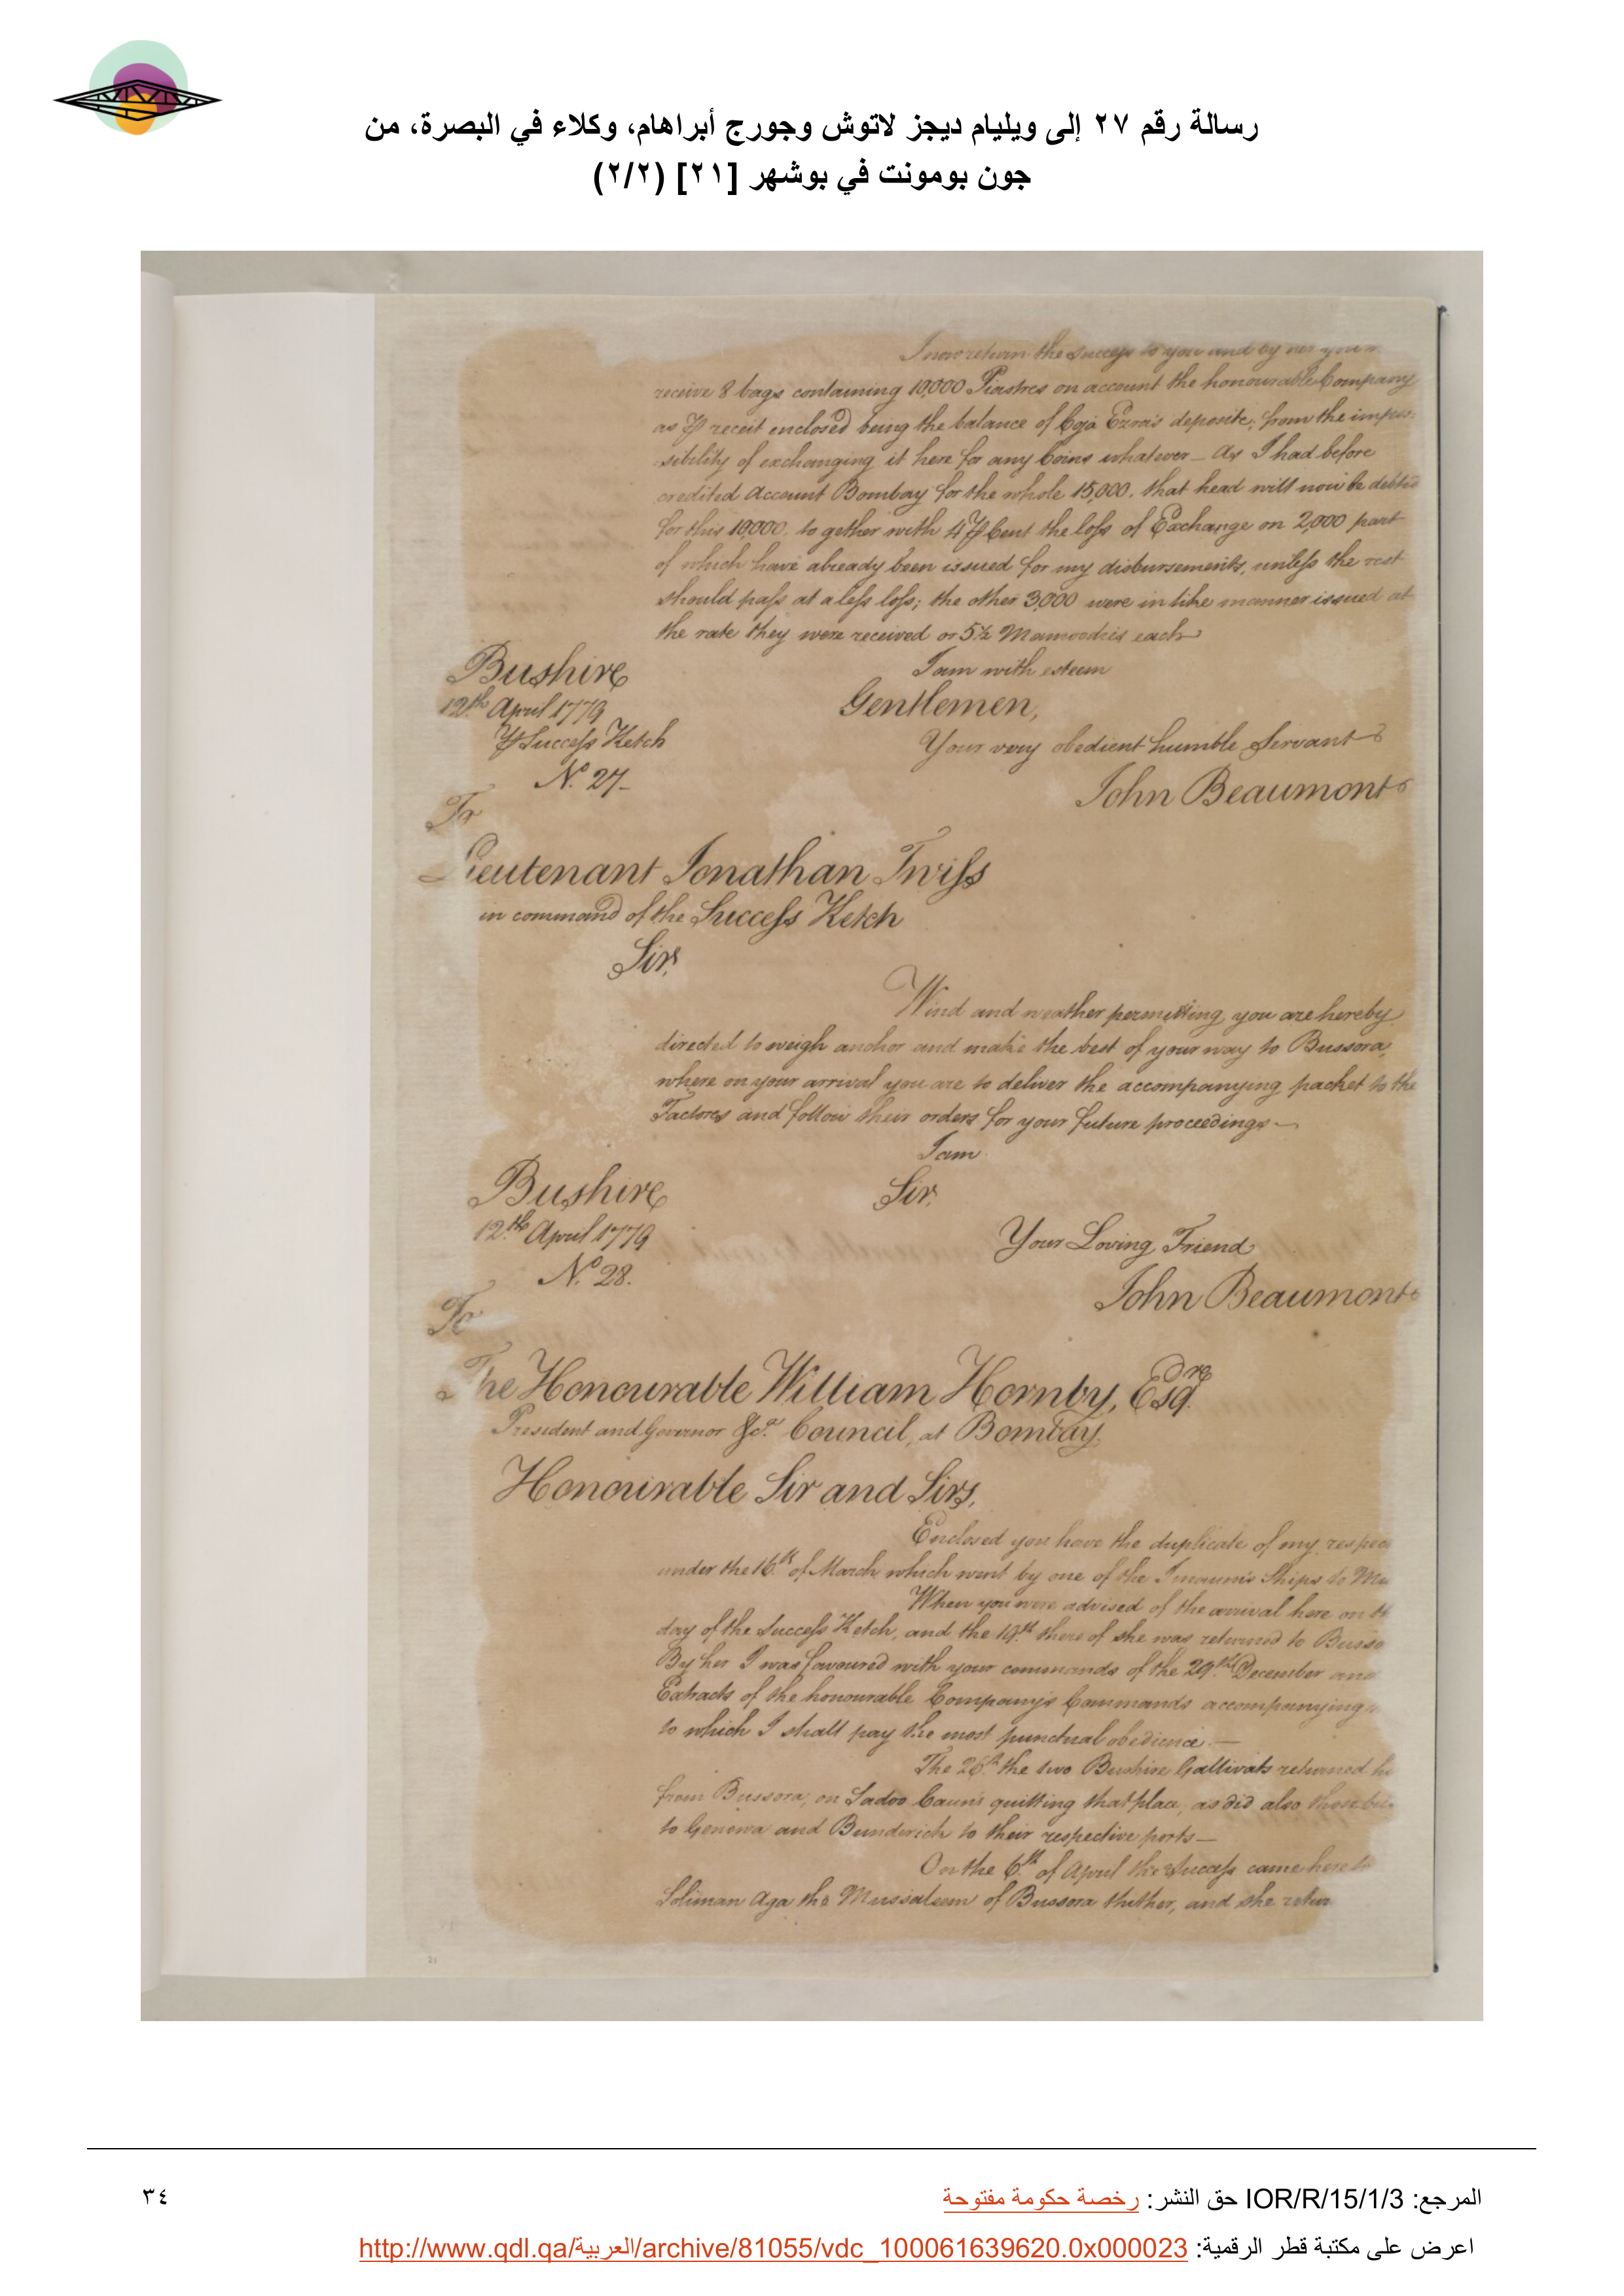 رسالة رقم ٢٧ إلى ويليام ديجز لاتوش وجورج أبراهام، وكلاء في البصرة، من
جون بومونت في بوشهر [٢١] (٢/٢)
I now return the Success to you and by her you
receive 8 bags containing 10,000 Piastres on account the honourable Company
as ⅌ receit enclosed being the balance of Coja Ezra's deposite; from the impos:
:sibility of exchanging it here for any Coins whatever_ As I had before
credited Account Bombay for the whole 15,000. that head will now be debted
for this 10,000. to gether with 4 ⅌ Cent the loss of Exchange on 2,000 part
of which have already been issued for my disbursements, unless the rest
should pass at a less loss; the other 3,000 were in like manner issued at
the rate they were received or 5½ Mamoodies each
I am with esteem
Bushire
Gentlemen,
12th April 1779
⅌ Success Ketch
Your very obedient humble Servant
No. 27_
John Beaumont
To
Lieutenant Jonathan Twiss
in command of the Success Ketch
Sir,
Wind and weather permitting, you are hereby
directed to weigh anchor and make the best of your way to Bussora,
where on your arrival you are to deliver the accompanying packet to the
Factors and follow their orders for your future proceedings_
I am
Bushire
Sir,
12th April 1779
Your Loving Friend
No. 28.
John Beaumont
To
The Honourable William Hornby, Esqre
President and Governor &ca. Council, at Bombay
Honourable Sir and Sirs,
Enclosed you have the duplicate of my respec
under the 16th of March which went by one of the Imaum's Ships to Mu
When you were advised of the arrival here on th
day of the Success Ketch, and the 19th there of she was returned to Busso
By her I was favoured with your commands of the 29th December and
Extracts of the honourable Company's Commands accompanying
to which I shall pay the most punctual obedience._
The 26th the two Bushire Gallivats returned he
from Bussora, on Sadoo Caun's quitting that place, as did also those
to Genowa and Bunderick to their respective ports_
On the 6th of April the Success came here
Soliman Aga the Mussaleem of Bussora thither, and she retur
21
المرجع: IOR/R/15/1/3 حق النشر: رخصة حكومة مفتوحة
٣٤
اعرض على مكتبة قطر الرقمية: http://www.qdl.qa/العربية/archive/81055/vdc_100061639620.0x000023